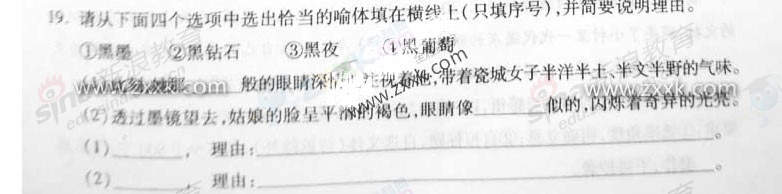 19. 请从下面四个选项中选出恰当的喻体填在横线上(只填序号),并简要说明理由。
①黑墨 ②黑钻石 ③黑夜 ④黑葡萄
(1) ______般的眼睛深情 注视着他,带着瓷城女子半洋半土、半文半野的气味。
(2)透过墨镜望去,姑娘的脸呈平滑的褐色,眼睛像______似的,闪烁着奇异的光亮。
(1)______, 理由:______。
(2)______, 理由:______。
www.zxxk.com
www.zxxk.com
www.zxxk.com
sina
新浪教育